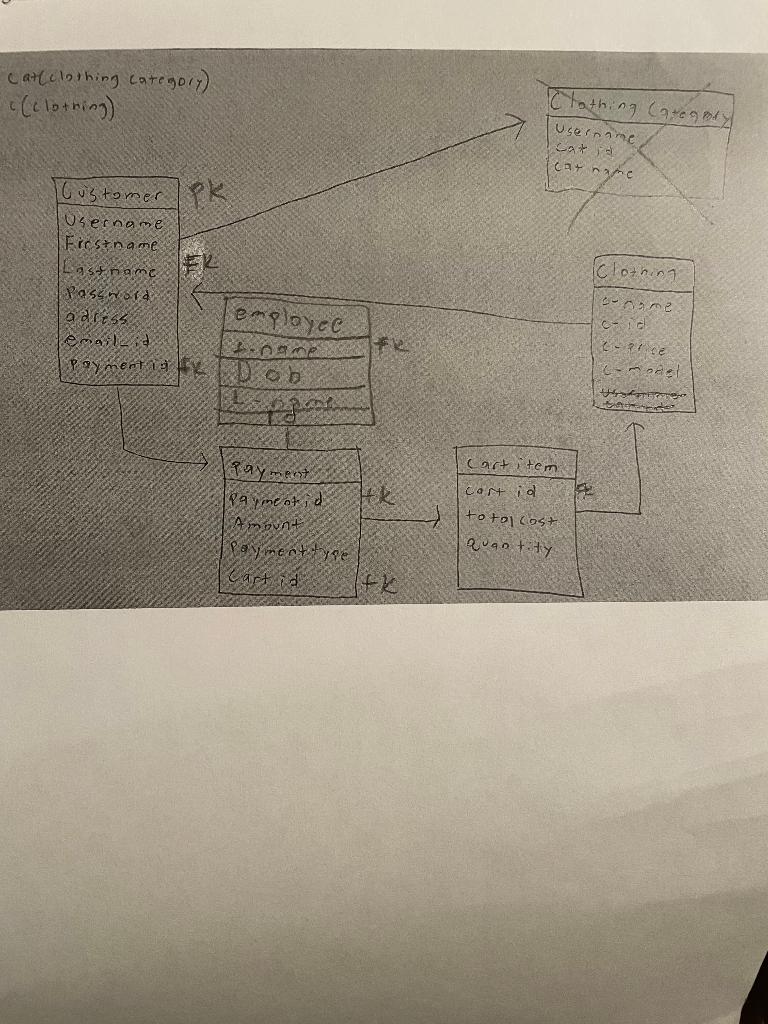 cat(clothing category)
c(clothing)
Clothing Category
Username
cat id
cat name
Customer PK
Username
Firstname
Lastname FK
Password
adress
email_id
Payment id FK
Clothing
c-name
c-id
c-price
c-model
employee
f.name FK
Dob
L-name
Id
Payment
Payment id FK
Amount
Payment type
Cart id FK
Cart item
cart id
total cost
quantity